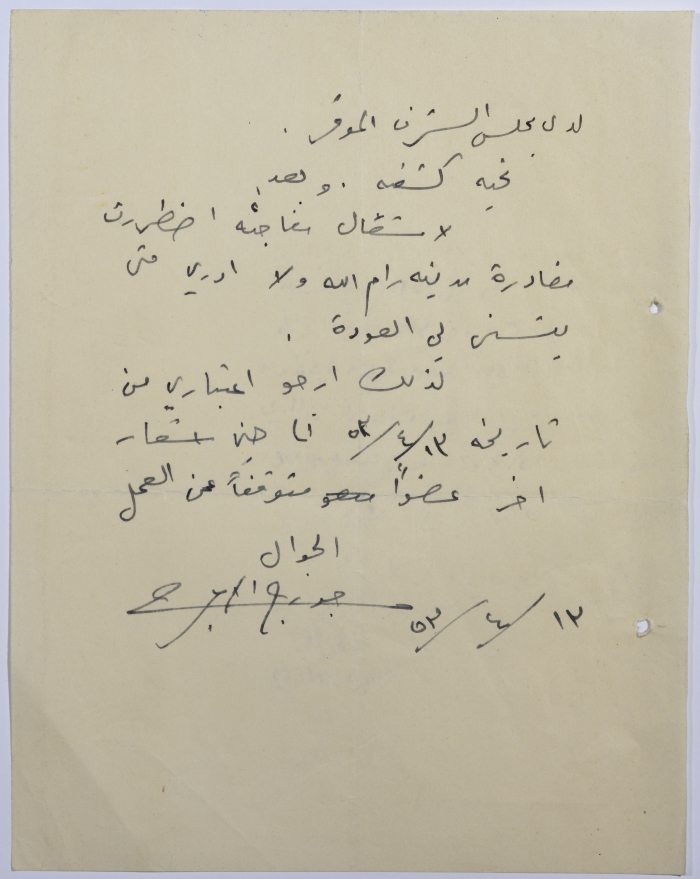 لدى مجلس الشرف الموقر .
تحية كشفية . وبعد
لاشغال مفاجئة اضطررت
مغادرة مدينة رام الله ولا ادري متى
يتسنى لي العودة .
لذلك ارجو اعتباري من
تاريخه ١٣/٤/٥٣ حتى اشعار
اخر عضواً متوقفاً عن العمل
الجوال
جورج
١٣/٤/٥٣